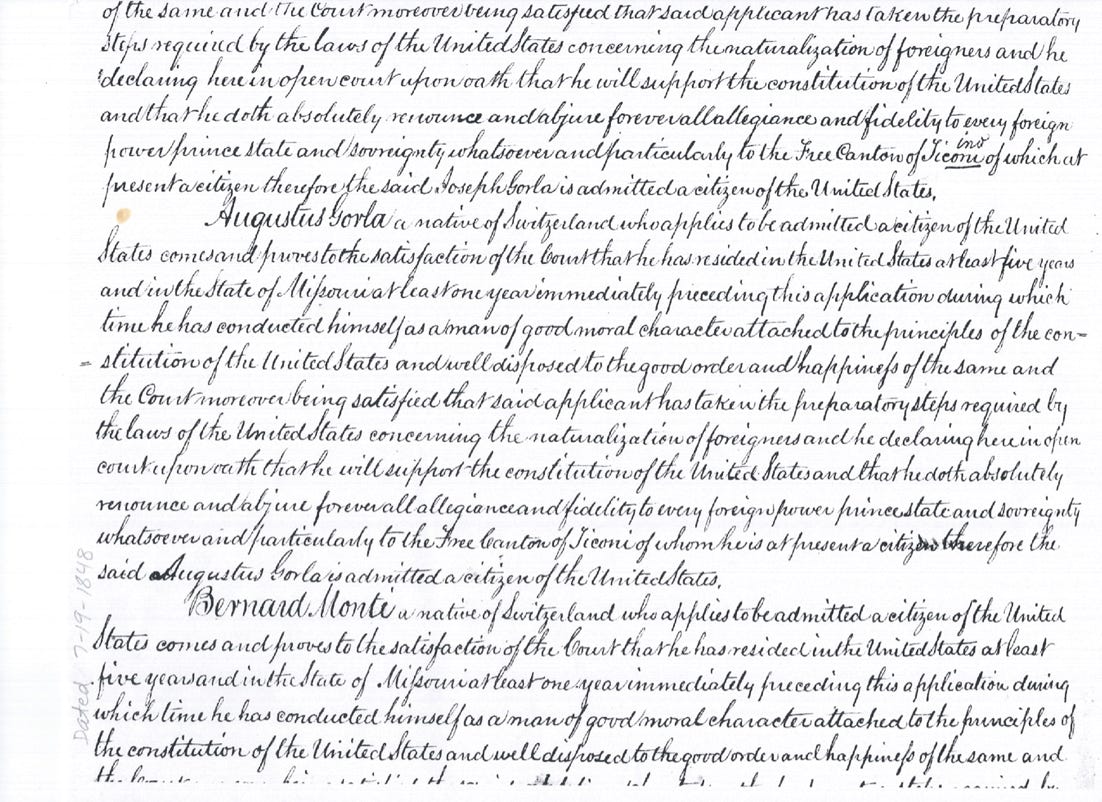 of the same and the Court moreover being satisfied that said applicant has taken the preparatory
steps required by the laws of the United States concerning the naturalization of foreigners and he
declaring here in open court upon oath that he will support the constitution of the United States
and that he doth absolutely renounce and abjure forever all allegiance and fidelity to every foreign
power prince state and sovreignty whatsoever and particularly to the Free Canton of Ticoni of which at
ino
present a citizen therefore the said Joseph Gorla is admitted a citizen of the United States.
Augustus Gorla a native of Switzerland who applies to be admitted a citizen of the United
States comes and proves to the satisfaction of the Court that he has resided in the United States at least five years
and in the State of Mifsouri at least one year immediately preceding this application during which
time he has conducted himself as a man of good moral character attached to the principles of the con=
=stitution of the United States and well disposed to the good order and happinefs of the same and
the Court moreover being satisfied that said applicant has taken the preparatory steps required by
the laws of the United States concerning the naturalization of foreigners and he declaring here in open
court upon oath that he will support the constitution of the United States and that he doth absolutely
renounce and abjure forever all allegiance and fidelity to every foreign power prince state and sovreignty
whatsoever and particularly to the Free Canton of Ticoni of whom he is at present a citizen therefore the
said Augustus Gorla is admitted a citizen of the United States.
Bernard Monti a native of Switzerland who applies to be admitted a citizen of the United
States comes and proves to the satisfaction of the Court that he has resided in the United States at least
five years and in the State of Mifsouri at least one year immediately preceding this application during
which time he has conducted himself as a man of good moral character attached to the principles of
the constitution of the United States and well disposed to the good order and happinefs of the same and
Dated 7-19-1848